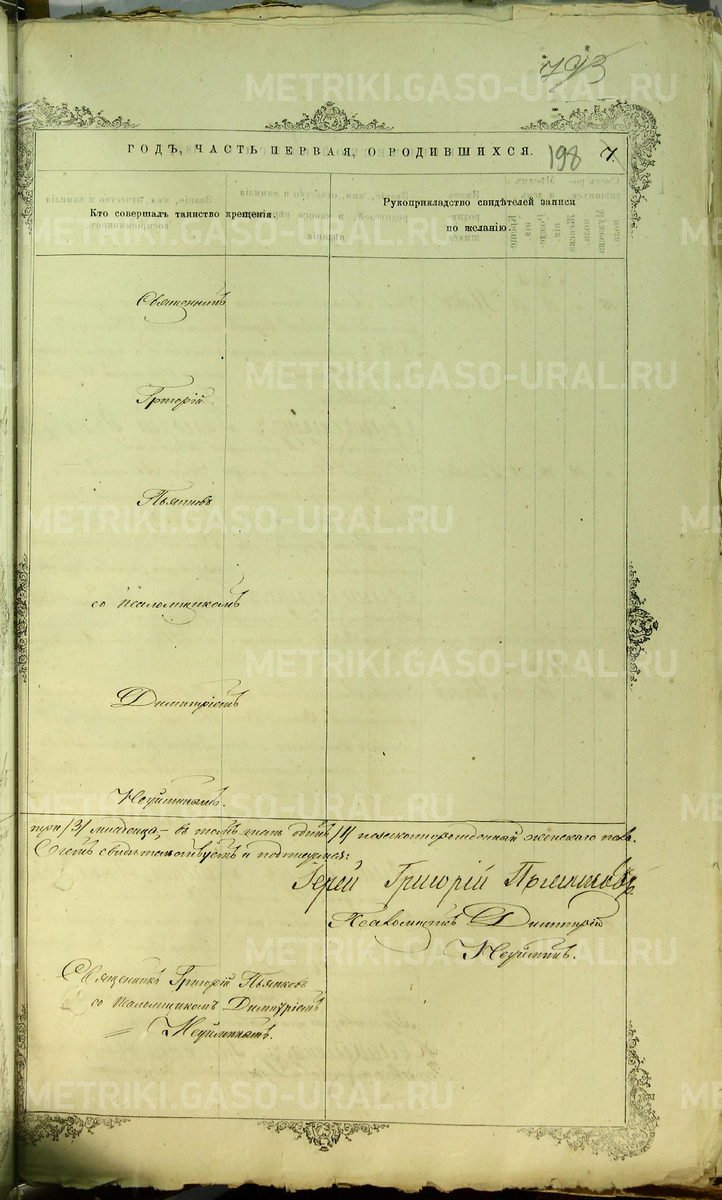 793
ГОДЪ, ЧАСТЬ ПЕРВАЯ, О РОДИВШИХСЯ.
198
7.
Кто совершалъ таинство крещенія.
Рукоприкладство свидѣтелей записи
по желанію.
Священникъ
Григорій
Пьянковъ
со псаломщикомъ
Димитріемъ
Неуйминымъ.
три /3/ младенца, въ томъ числѣ одинъ /1/ женскаго пола.
свидѣтельствуетъ и подписуетъ:
Іерей Григорій Пьянковъ.
Псаломщикъ Димитрій
Неуйминъ.
Священникъ Григорій Пьянковъ
со псаломщикомъ Димитріемъ
Неуйминымъ.
METRIKI.GASO-URAL.RU